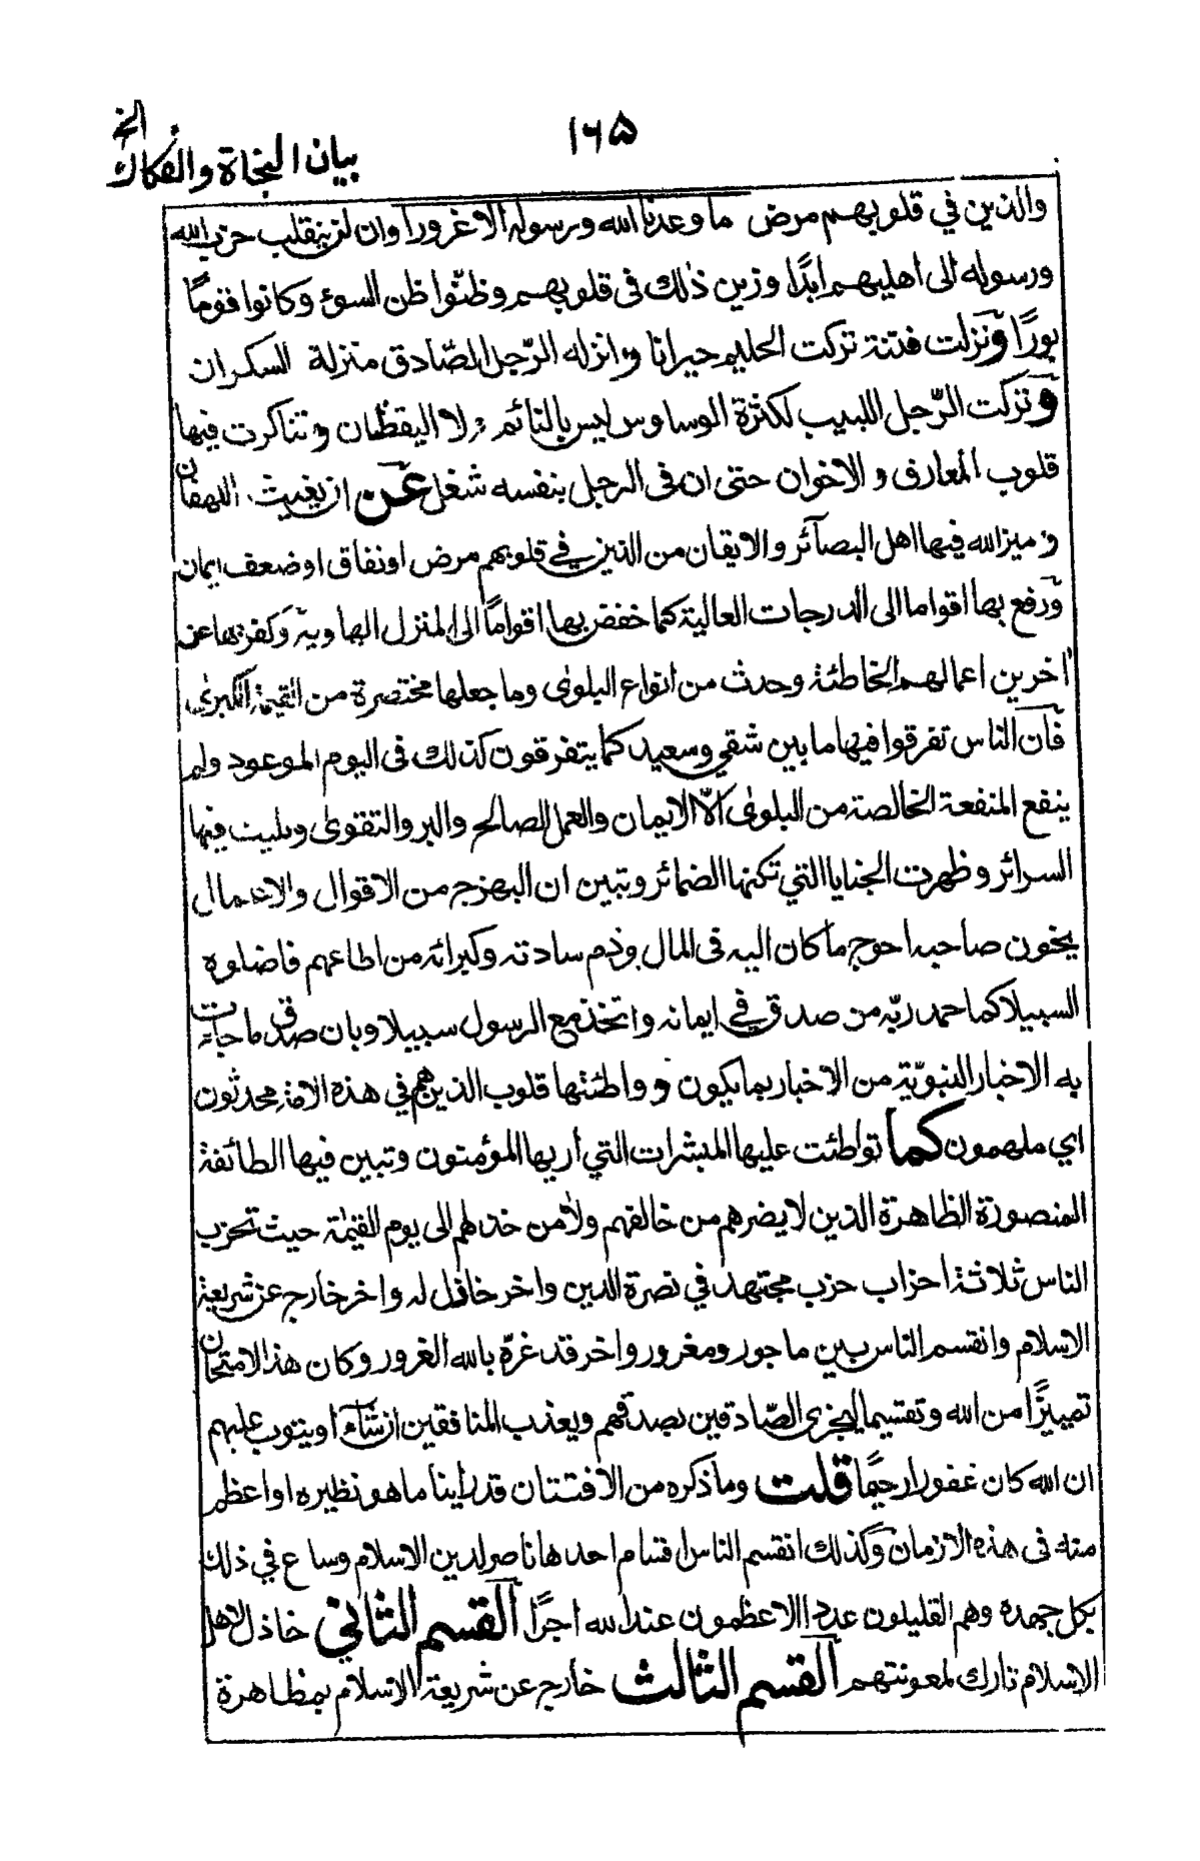 ١٦٥
بيان النجاة والفكاك الخ
والذين في قلوبهم مرض ما وعدنا الله ورسوله الا غرورا وان لن ينقلب حزب الله
ورسوله الى اهليهم ابدًا وزين ذلك فى قلوبهم وظنّوا ظن السوء وكانوا قومًا
بورًا ونزلت فتنة تركت الحليم حيرانا وانزله الرّجل الصّادق منزلة السكران
وتركت الرّجل اللبيب لكثرة الوساوس ليس بالنائم ولا اليقظان وتناكرت فيها
قلوب المعارف والاخوان حتى ان فى الرجل بنفسه شغل عن ان يغيث اللهفان
وميز الله فيها اهل البصآئر والايقان من الذين في قلوبهم مرض او نفاق او ضعف ايمان
ورفع بها اقواما الى الدرجات العالية كما خفض بها اقوامًا الى المنزل الهاوية وكفر بها عن
اخرين اعمالهم الخاطئة وحدث من انواع البلوى وما جعلها مختصرة من القيمة الكبرى
فان الناس تفرقوا فيها ما بين شقي وسعيد كما يتفرقون كذلك فى اليوم الموعود ولم
ينفع المنفعة الخالصة من البلوى الّا الايمان والعمل الصالح والبر والتقوى وبليت فيها
السرائر وظهرت الجنايا التي تكنها الضمائر وتبين ان البهرج من الاقوال والاعمال
يخون صاحبه احوج ما كان اليه فى المال وذم سادته وكبرائه من اطاعهم فاضلوه
السبيلا كما حمد ربّه من صدق في ايمانه واتخذ مع الرسول سبيلا وبان صدق ما جاءت
به الاخبار النبويّة من الاخبار بما يكون وواطئتها قلوب الذين هم في هذه الامة محدثون
اي ملهمون كما تواطئت عليها المبشرات التي أريها المؤمنون وتبين فيها الطائفة
المنصورة الظاهرة الذين لا يضرهم من خالفهم ولا من خذلهم الى يوم القيمة حيث تحزب
الناس ثلاثة احزاب حزب مجتهد في نصرة الدين واخر خاذل له واخر خارج عن شريعة
الاسلام وانقسم الناس بين ماجور ومغرور واخر قد غرّه بالله الغرور وكان هذا الامتحان
تمييزًا من الله وتقسيما ليجزى الصّادقين بصدقهم ويعذب المنافقين ان شآء او يتوب عليهم
ان الله كان غفورا رحيمًا قلت وما ذكره من الافتتان قد راينا ما هو نظيره او اعظم
منه فى هذه الازمان وكذلك انقسم الناس اقسام احدها ناصر لدين الاسلام وساع في ذلك
بكل جهده وهم القليلون عددا الاعظمون عند الله اجرًا القسم الثاني خاذل لاهل
الاسلام تارك لمعونتهم القسم الثالث خارج عن شريعة الاسلام بمظاهرة